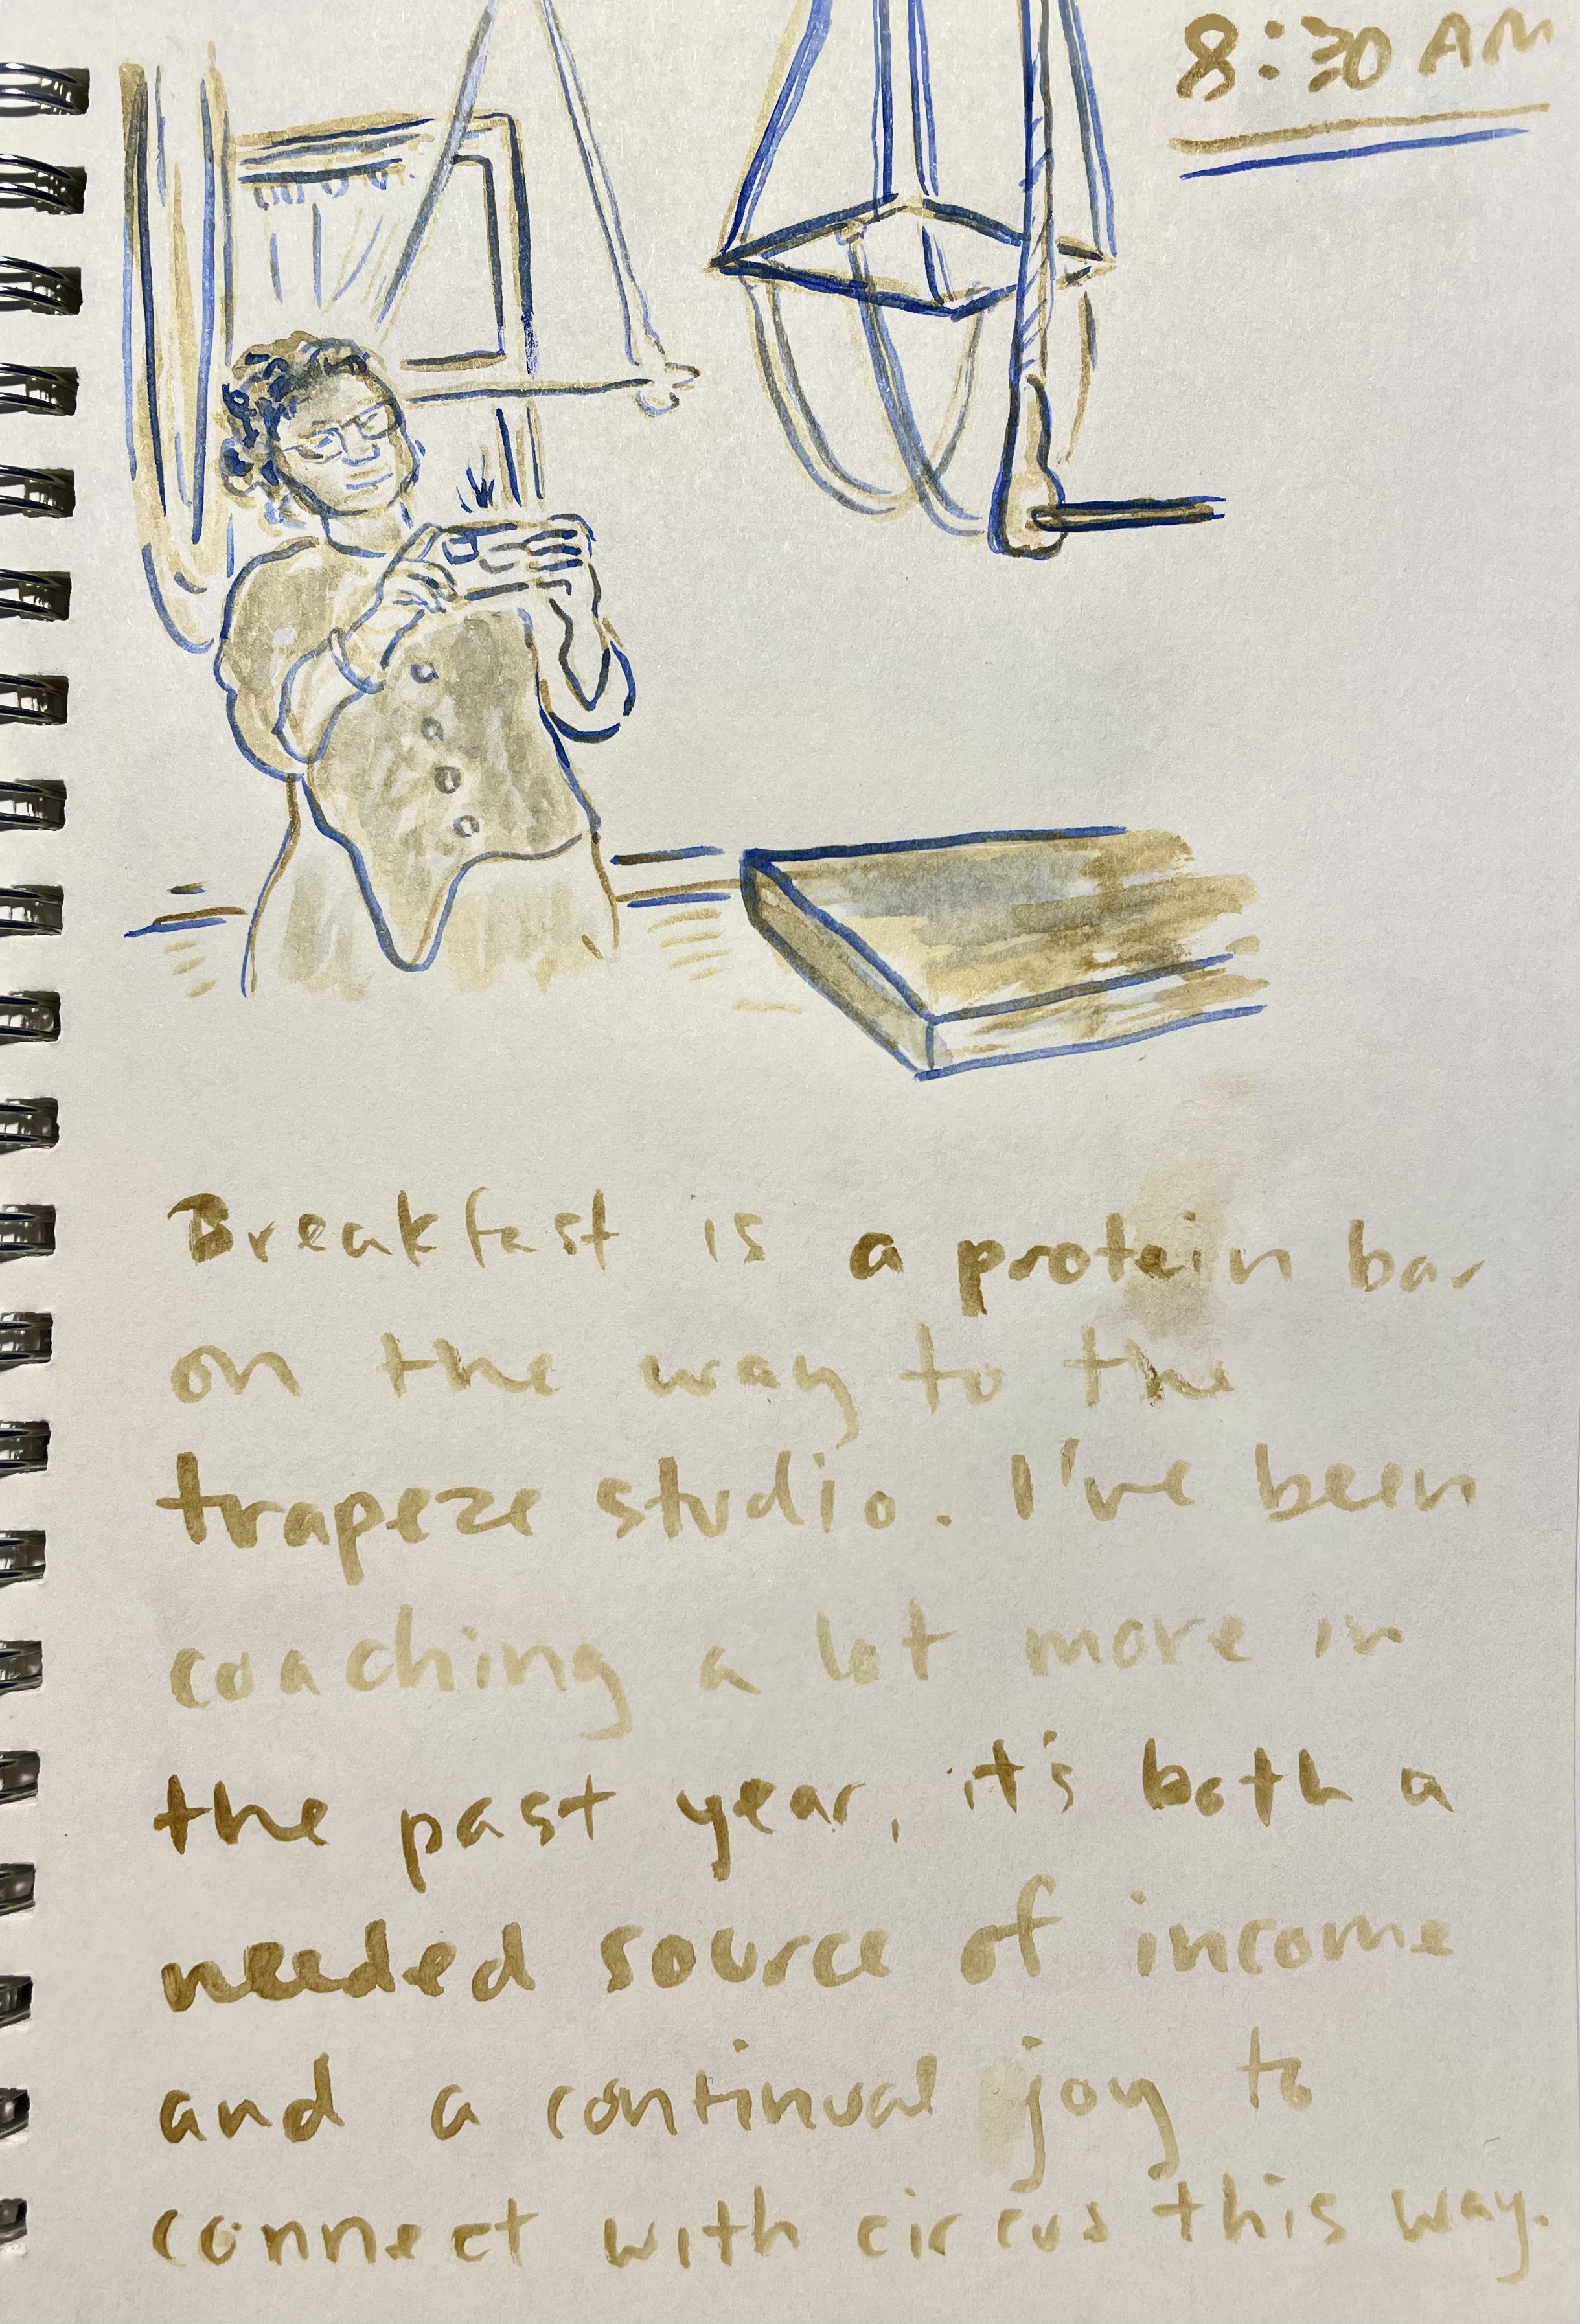 8:30 AM
Breakfast is a protein bar
on the way to the
trapeze studio. I've been
coaching a lot more in
the past year, it's both a
needed source of income
and a continual joy to
connect with circus this way.